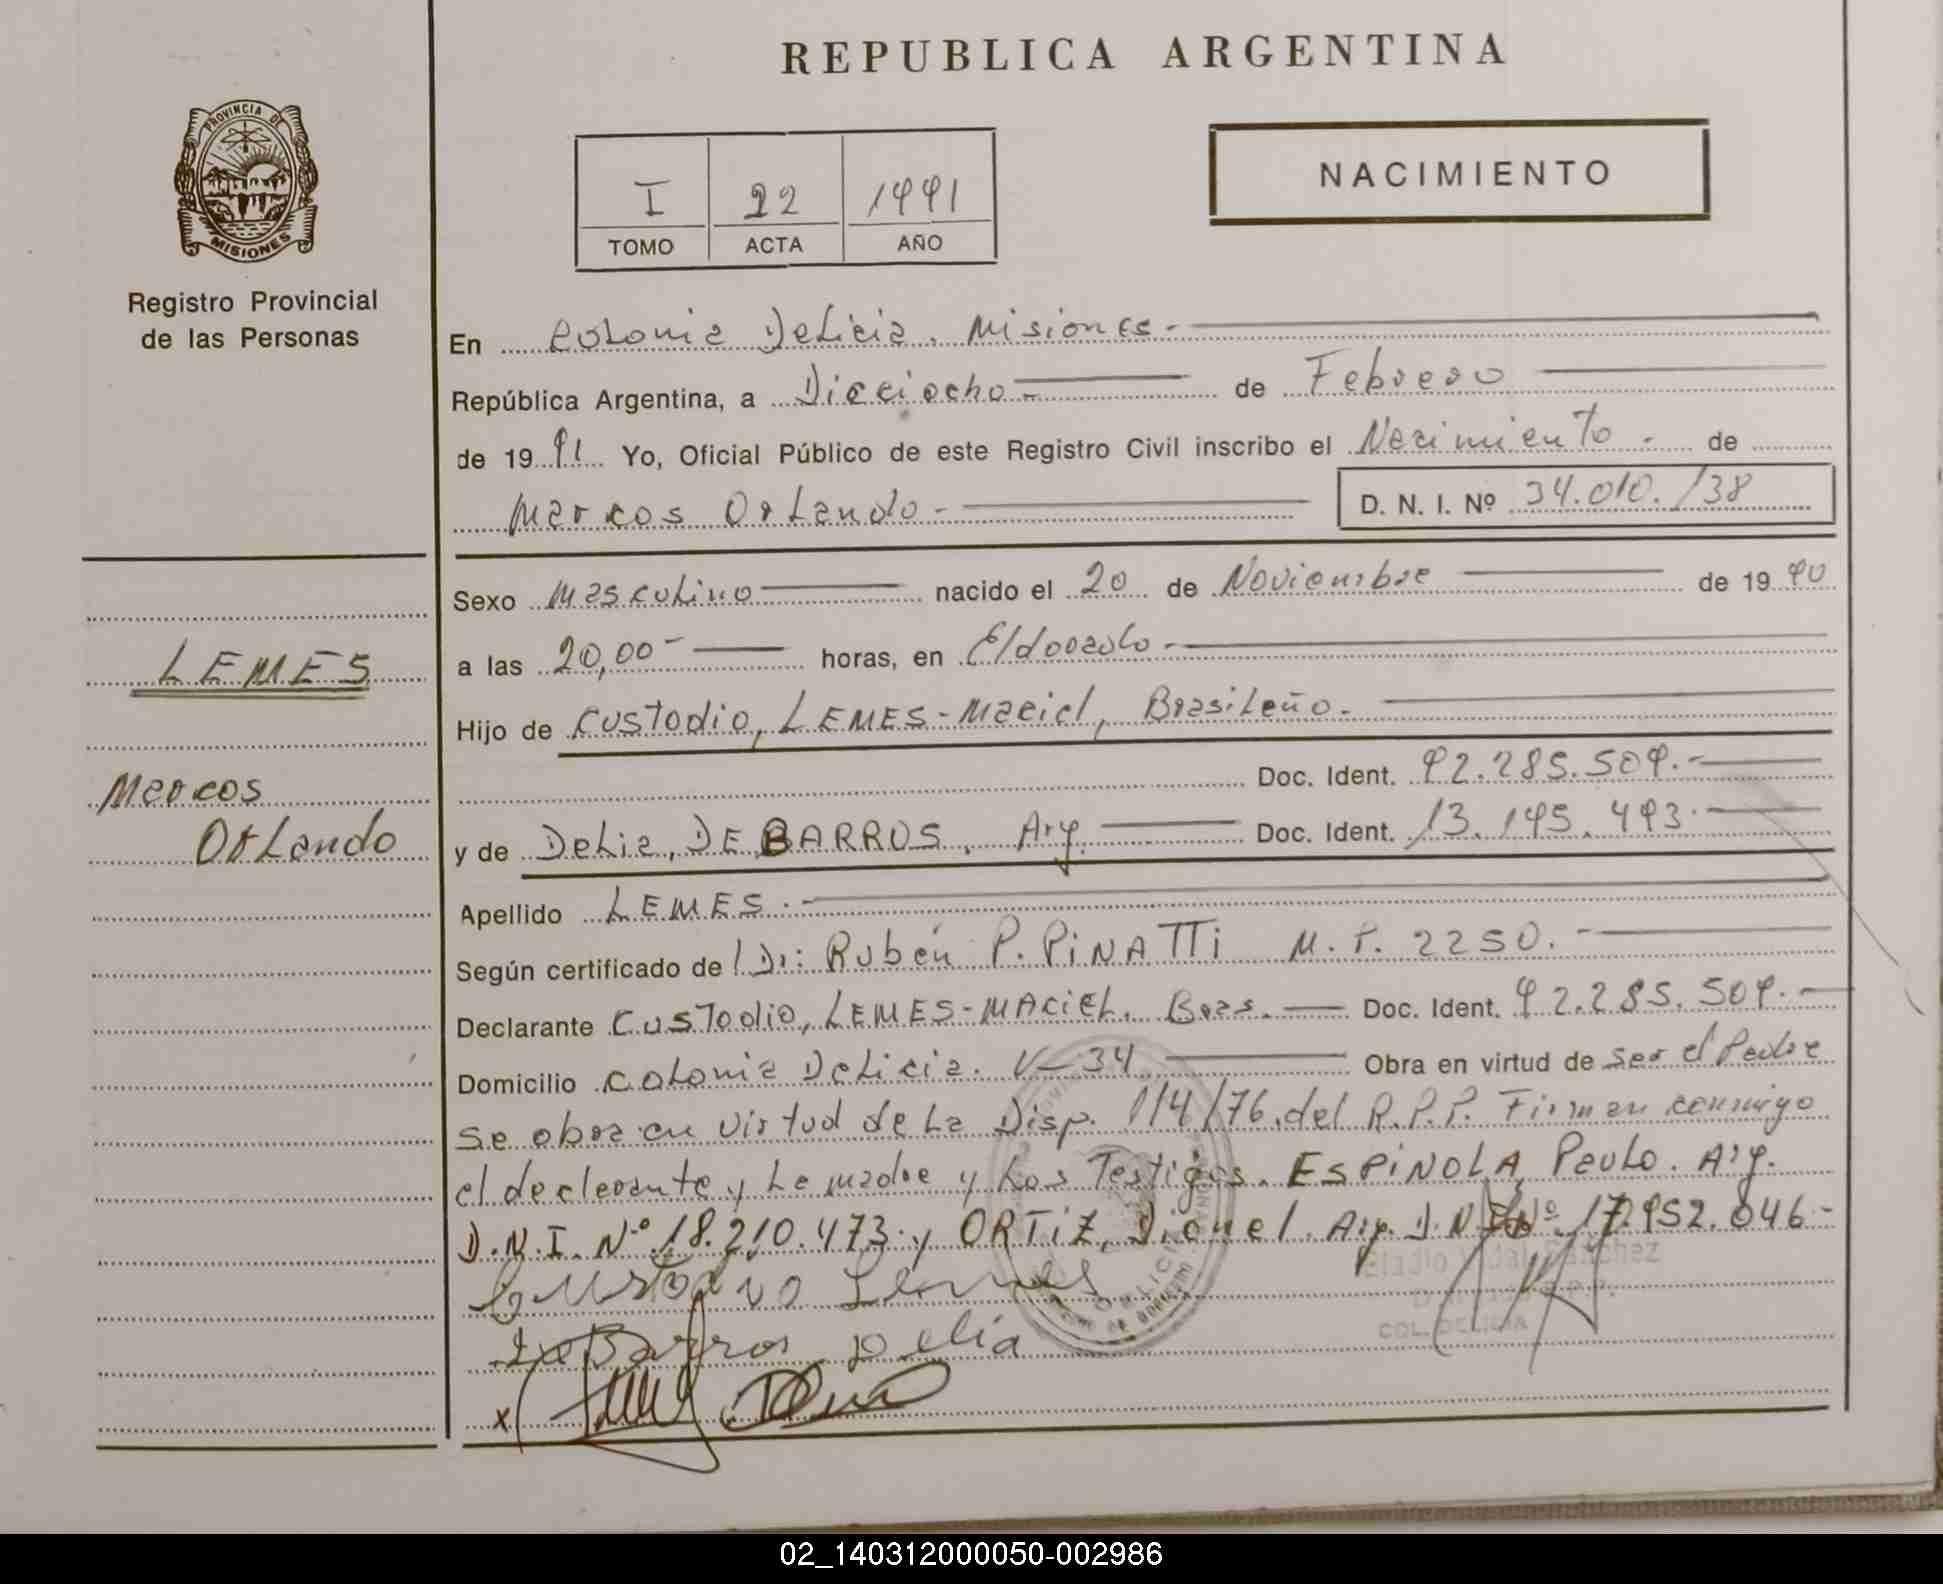 REPUBLICA ARGENTINA
PROVINCIA DE
MISIONES
Registro Provincial
de las Personas
I 22 1991
TOMO ACTA AÑO
NACIMIENTO
En Colonia Delicia. Misiones.-
República Argentina, a Dieciocho.- de Febrero
de 19 91 Yo, Oficial Público de este Registro Civil inscribo el Nacimiento.- de
Marcos Orlando.-
D. N. I. Nº 34.010.138
LEMES
Marcos
Orlando
Sexo Masculino nacido el 20 de Noviembre de 19 90
a las 20,00- horas, en Eldorado.-
Hijo de Custodio, LEMES-Maciel, Brasileño.-
Doc. Ident. 92.285.509.-
y de Delia, DE BARROS. Arg. Doc. Ident. 13.195.493.-
Apellido LEMES.-
Según certificado de Dr: Rubén P. PiNATTi M.P. 2250.-
Declarante Custodio, LEMES-MACiEL. Bras. Doc. Ident. 92.285.509.-
Domicilio Colonia Delicia. V-34 Obra en virtud de ser el Padre
se obra en virtud de la Disp. 114/76. del R.P.P. Firman conmigo
el declarante y la madre y los Testigos. ESPiNOLA, Paulo. Arg.
D.N.I. Nº 18.210.473. y ORTiZ, Dionel. Arg. D.N.I. Nº 17.952.046-
Custodio Lemes
De Barros Delia
x
COL. DELICIA
02_140312000050-002986